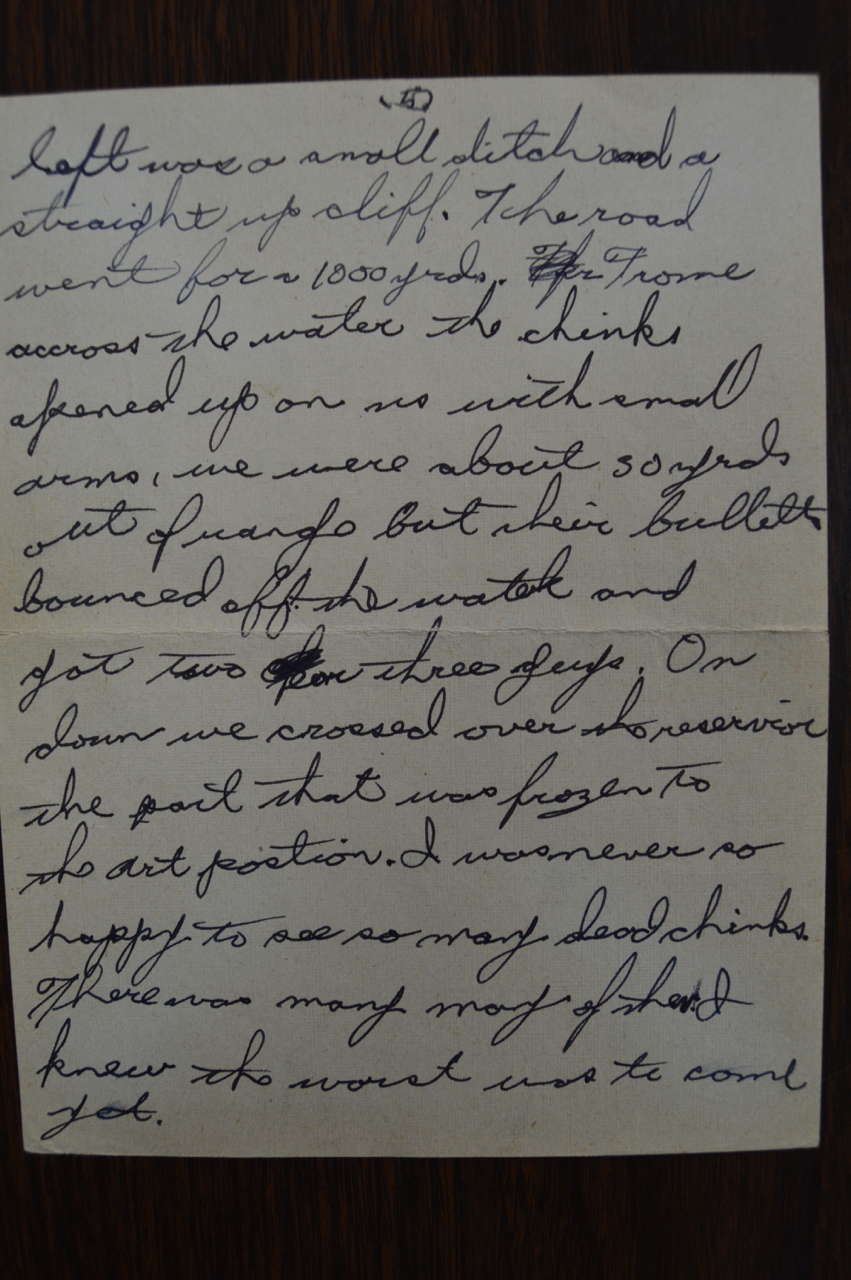 (15)
left was a small ditch and a
straight up cliff. The road
went for ~ 1000 yrds. Frome
accross the water the chinks
opened up on us with small
arms, we were about 30 yrds
out of range but their bulletts
bounced off the water and
got two or three guys. On
down we crossed over the reservior
the part that was frozen to
the art postion. I was never so
happy to see so many dead chinks.
There was many many of them I
knew the worst was to come
yet.